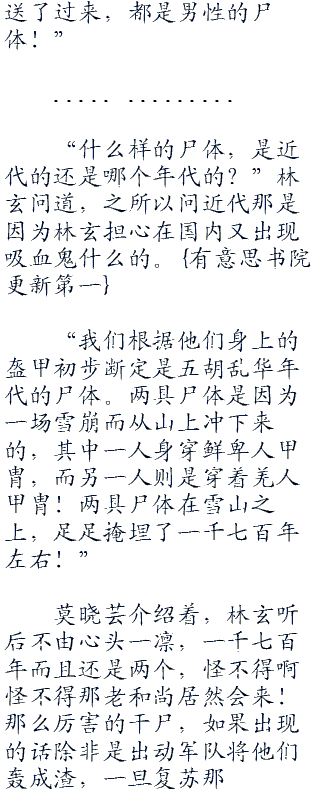 送了过来，都是男性的尸
体！”
..... .........
“什么样的尸体，是近
代的还是哪个年代的？”林
玄问道，之所以问近代那是
因为林玄担心在国内又出现
吸血鬼什么的。{有意思书院
更新第一}
“我们根据他们身上的
盔甲初步断定是五胡乱华年
代的尸体。两具尸体是因为
一场雪崩而从山上冲下来
的，其中一人身穿鲜卑人甲
胄，而另一人则是穿着羌人
甲胄！两具尸体在雪山之
上，足足掩埋了一千七百年
左右！”
莫晓芸介绍着，林玄听
后不由心头一凛，一千七百
年而且还是两个，怪不得啊
怪不得那老和尚居然会来！
那么厉害的干尸，如果出现
的话除非是出动军队将他们
轰成渣，一旦复苏那